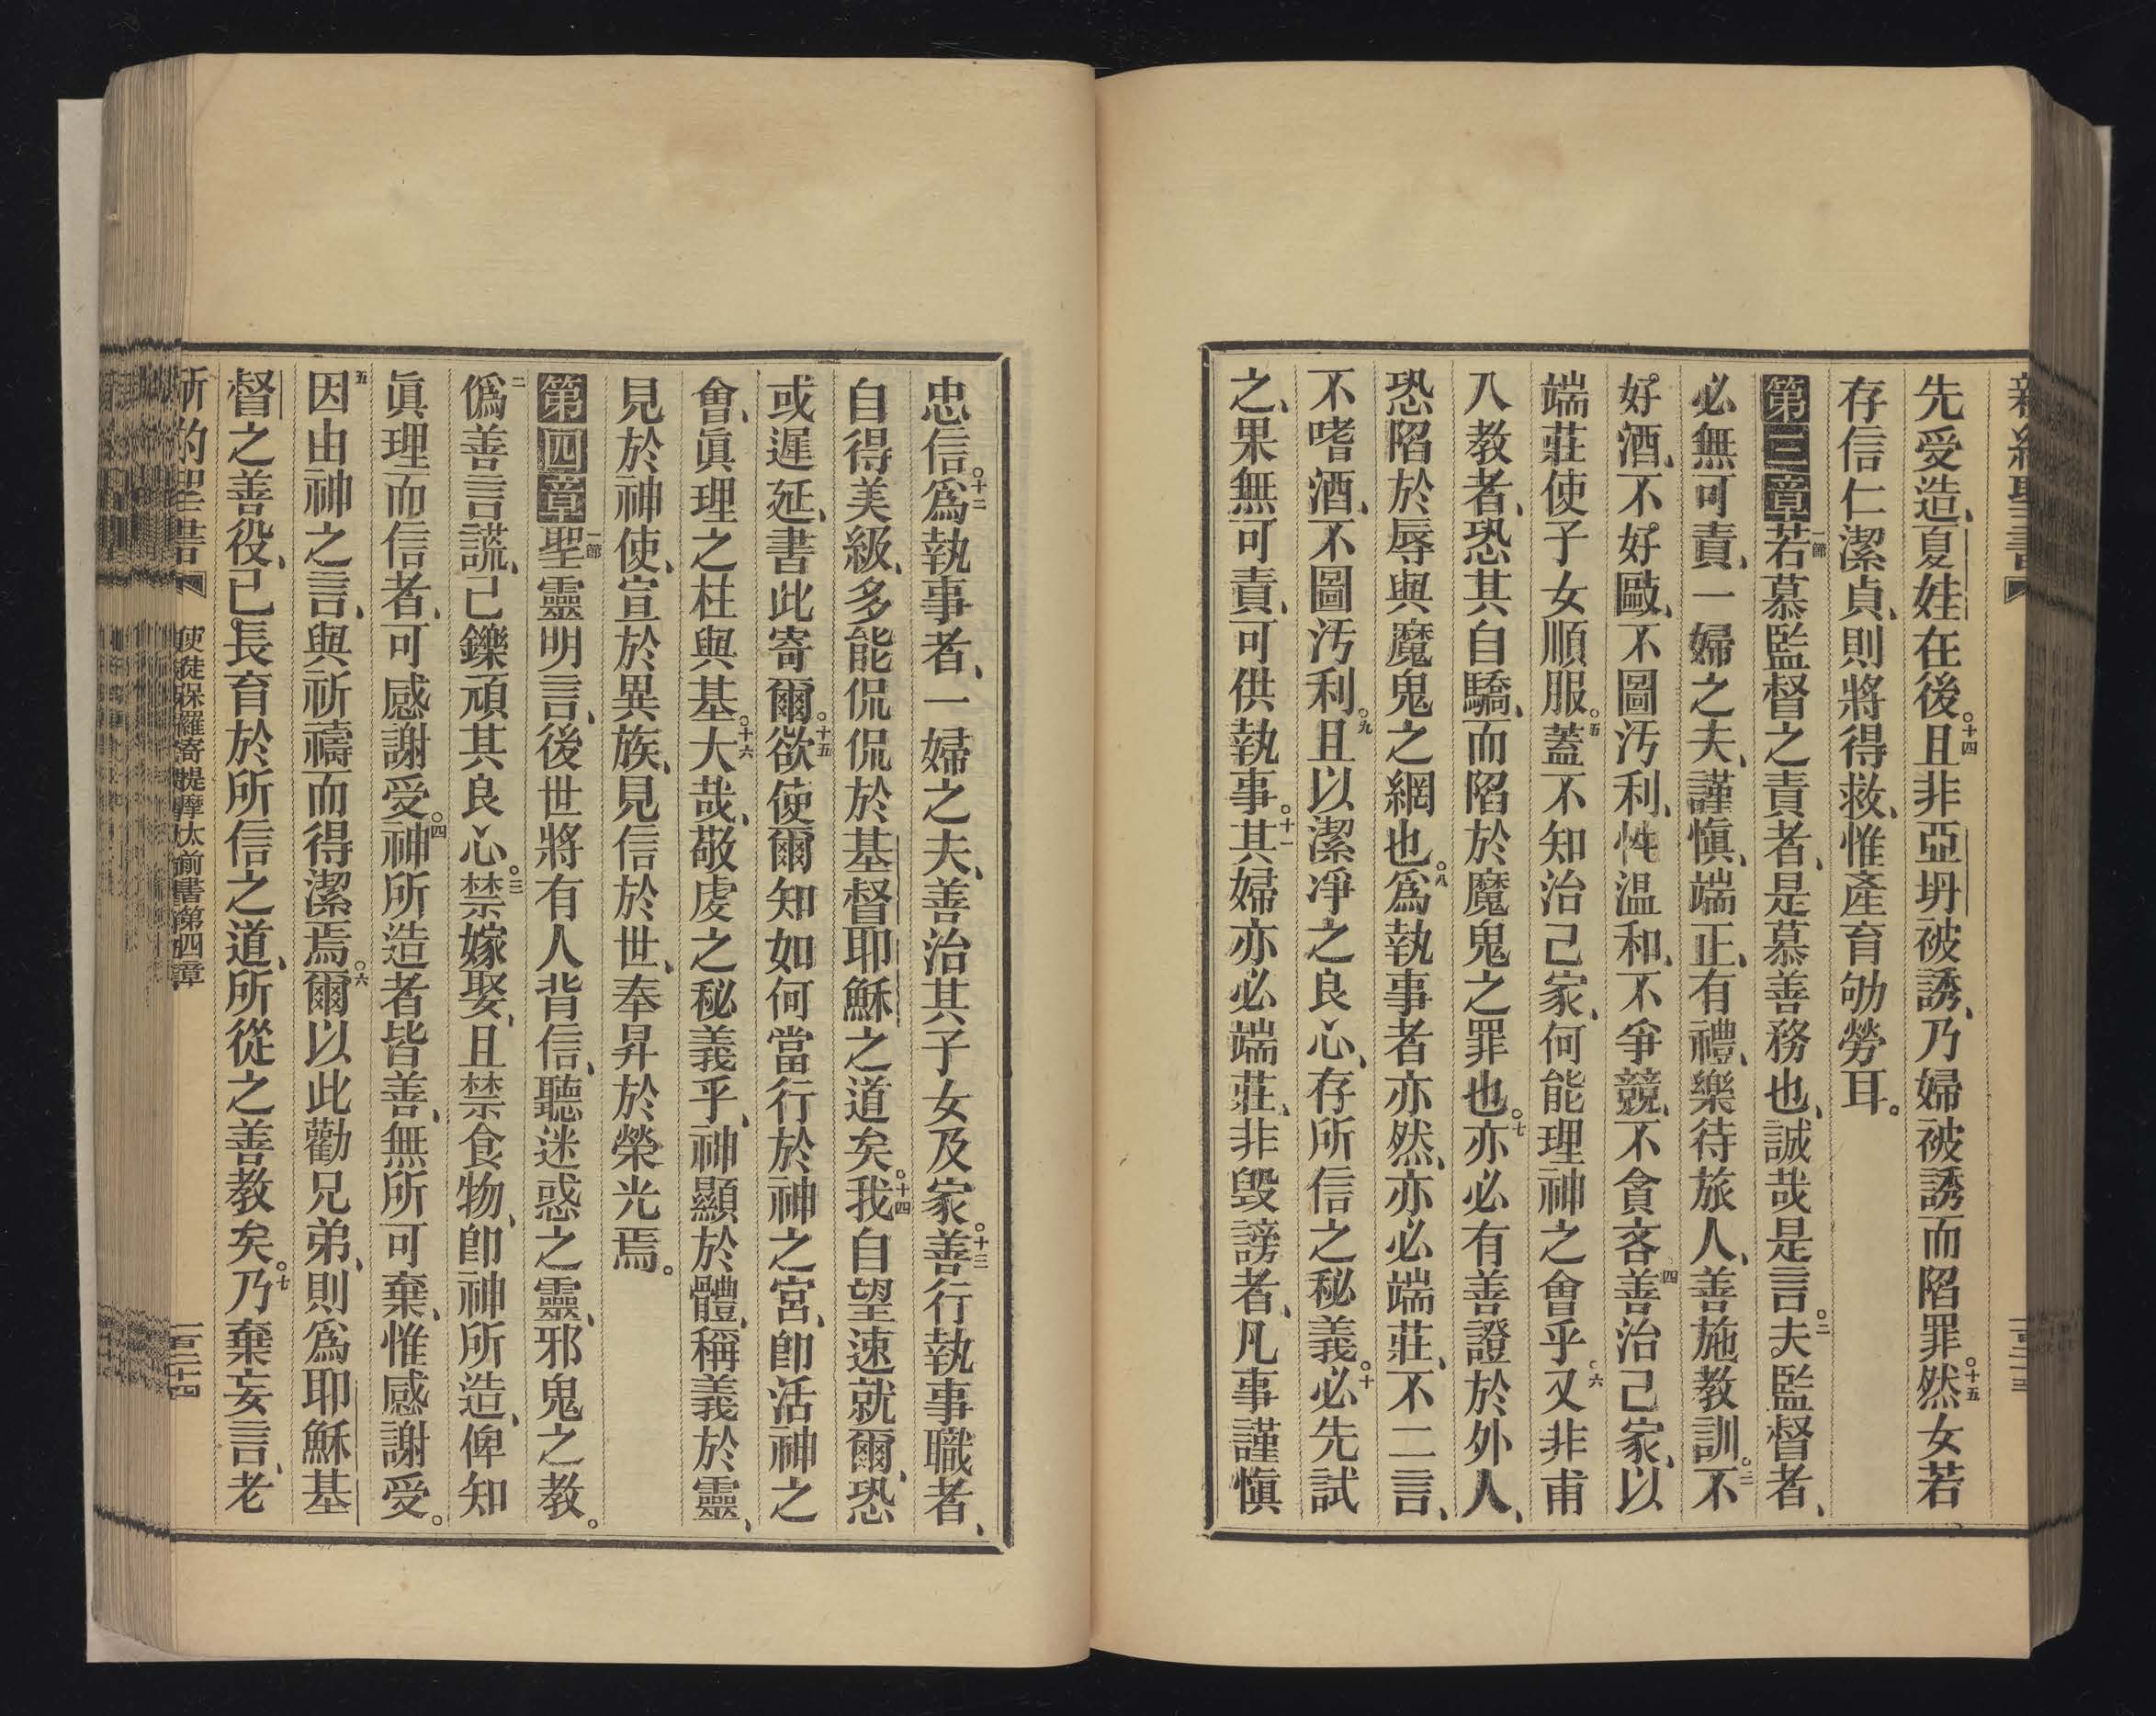 先受造、夏娃在後。十四且非亞坍被誘、乃婦被誘而陷罪。十五然女若
存信仁潔貞、則將得救、惟產育劬勞耳。
第三章一節若慕監督之責者、是慕善務也、誠哉是言。二夫監督者、
必無可責、一婦之夫、謹愼、端正、有禮、樂待旅人、善施教訓。三不
好酒、不好毆、不圖汚利、性温和、不爭競、不貪吝四善治己家、以
端莊使子女順服。五蓋不知治己家、何能理神之會乎。六又非甫
入教者、恐其自驕、而陷於魔鬼之罪也。七亦必有善證於外人、
恐陷於辱與魔鬼之網也。八爲執事者亦然、亦必端莊、不二言、
不嗜酒、不圖汚利。九且以潔凈之良心、存所信之秘義。十必先試
之、果無可責、可供執事。十一其婦亦必端莊、非毁謗者、凡事謹愼
忠信。十二爲執事者、一婦之夫、善治其子女及家。十三善行執事職者、
自得美級、多能侃侃於基督耶穌之道矣。十四我自望速就爾、恐
或遲延、書此寄爾。十五欲使爾知如何當行於神之宮、卽活神之
會、眞理之柱與基。十六大哉、敬虔之秘義乎、神顯於體、稱義於靈、
見於神使、宣於異族、見信於世、奉昇於榮光焉。
第四章一節聖靈明言、後世將有人背信、聽迷惑之靈、邪鬼之教。
二僞善言謊、己鑠頑其良心。三禁嫁娶、且禁食物、卽神所造、俾知
眞理而信者、可感謝受。四神所造者皆善、無所可棄、惟感謝受。
五因由神之言、與祈禱而得潔焉。六爾以此勸兄弟、則爲耶穌基
督之善役、己長育於所信之道、所從之善教矣。七乃棄妄言、老
使徒保羅寄提摩太前書第四章
一百二十四